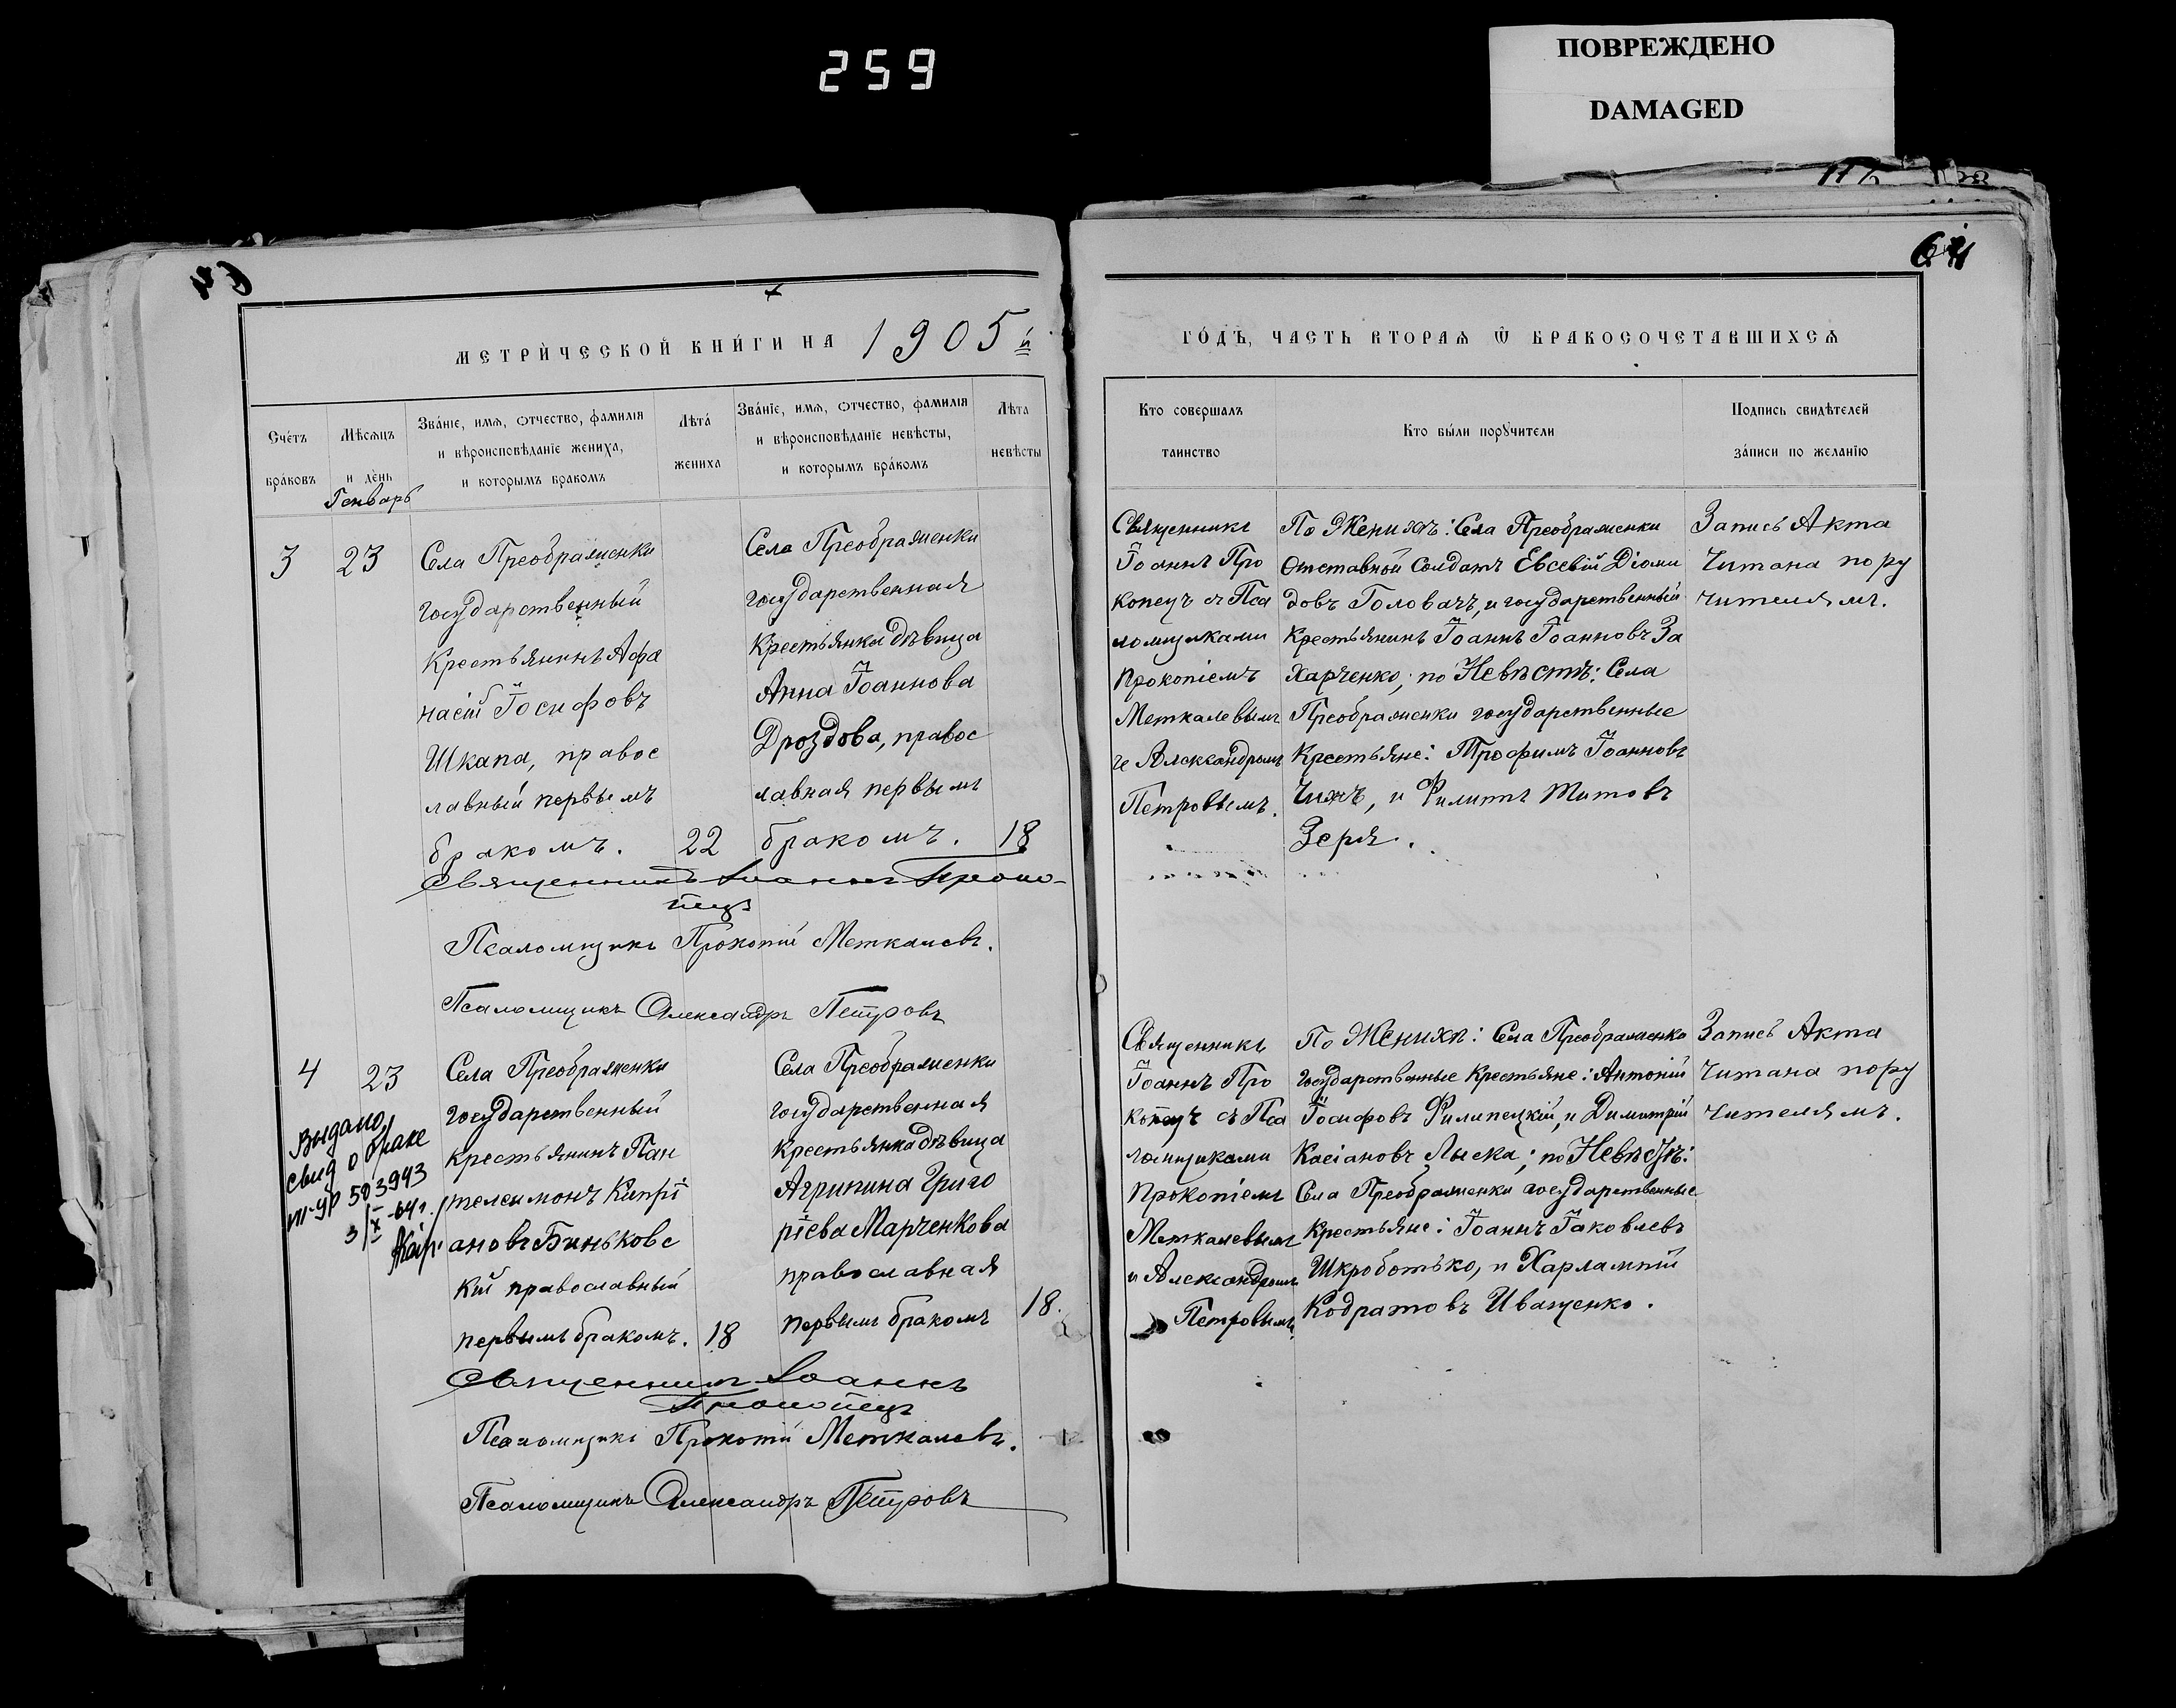 259
ПОВРЕЖДЕНО
DAMAGED
МЕТРИЧЕСКОЙ КНИГИ НА 1905й
Счетъ
браковъ
Мѣсяцъ
и день
Генварь
Званіе, имя, отчество, фамилія
и вѣроисповѣданіе жениха,
и которымъ бракомъ
Лѣта
жениха
Званіе, имя, отчество, фамилія
и вѣроисповѣданіе невѣсты,
и которымъ бракомъ
Лѣта
невѣсты
3
23
Села Преображенки
государственный
Крестьянинъ Афа
насій Іосифовъ
Шкапа, правос
лавный первымъ
бракомъ.
22
Села Преображенки
государственная
Крестьянка дѣвица
Анна Іоаннова
Дроздова, правос
лавная первымъ
бракомъ.
18
Священникъ Іоаннъ Проко-
пецъ
Псаломщикъ Прокопій Меткалевъ.
Псаломщикъ Александръ Петровъ
4
23
Выдано
свид о браке
503943
Села Преображенки
государственный
крестьянинъ Пан
телеимонъ Кипрі
ановъ Биньковс
кій православный
первымъ бракомъ.
18
Села Преображенки
государственная
Крестьянка дѣвица
Агрипина Григо
ріева Марченкова
православная
первымъ бракомъ
18.
Священникъ Іоаннъ
Прокопецъ
Псаломщикъ Прокопій Меткалевъ.
Псаломщикъ Александръ Петровъ
ГОДЪ, ЧАСТЬ ВТОРАЯ Ѿ БРАКОСОЧЕТАВШИХСЯ
Кто совершалъ
таинство
Кто были поручители
Подпись свидѣтелей
записи по желанію
Священникъ
Іоаннъ Про
копецъ съ Пса
ломщиками
Прокопіемъ
Меткалевымъ
и Александромъ
Петровымъ.
По Женихѣ: Села Преображенки
Отставной Солдатъ Евсевій Діоми
довъ Головачъ, и государственный
Крестьянинъ Іоаннъ Іоанновъ За
харченко; по Невѣстѣ: Села
Преображенки государственные
Крестьяне: Трофимъ Іоанновъ
Чижъ, и Филиппъ Титовъ
Зеря.
Запись Акта
Читана пору
чителямъ.
Священникъ
Іоаннъ Про
копецъ съ Пса
ломщиками
Прокопіемъ
Меткалевымъ
и Александромъ
Петровымъ.
По Женихѣ: Села Преображенко
Государственные Крестьяне: Антоній
Іосифовъ Филипецкій, и Димитрій
Касіановъ Лыска; по Невѣстѣ:
Села Преображенки государственные
Крестьяне: Іоаннъ Іаковлевъ
Шкроботько, и Харлампій
Кодратовъ Иващенко.
Запись Акта
Читана пору
чителямъ.